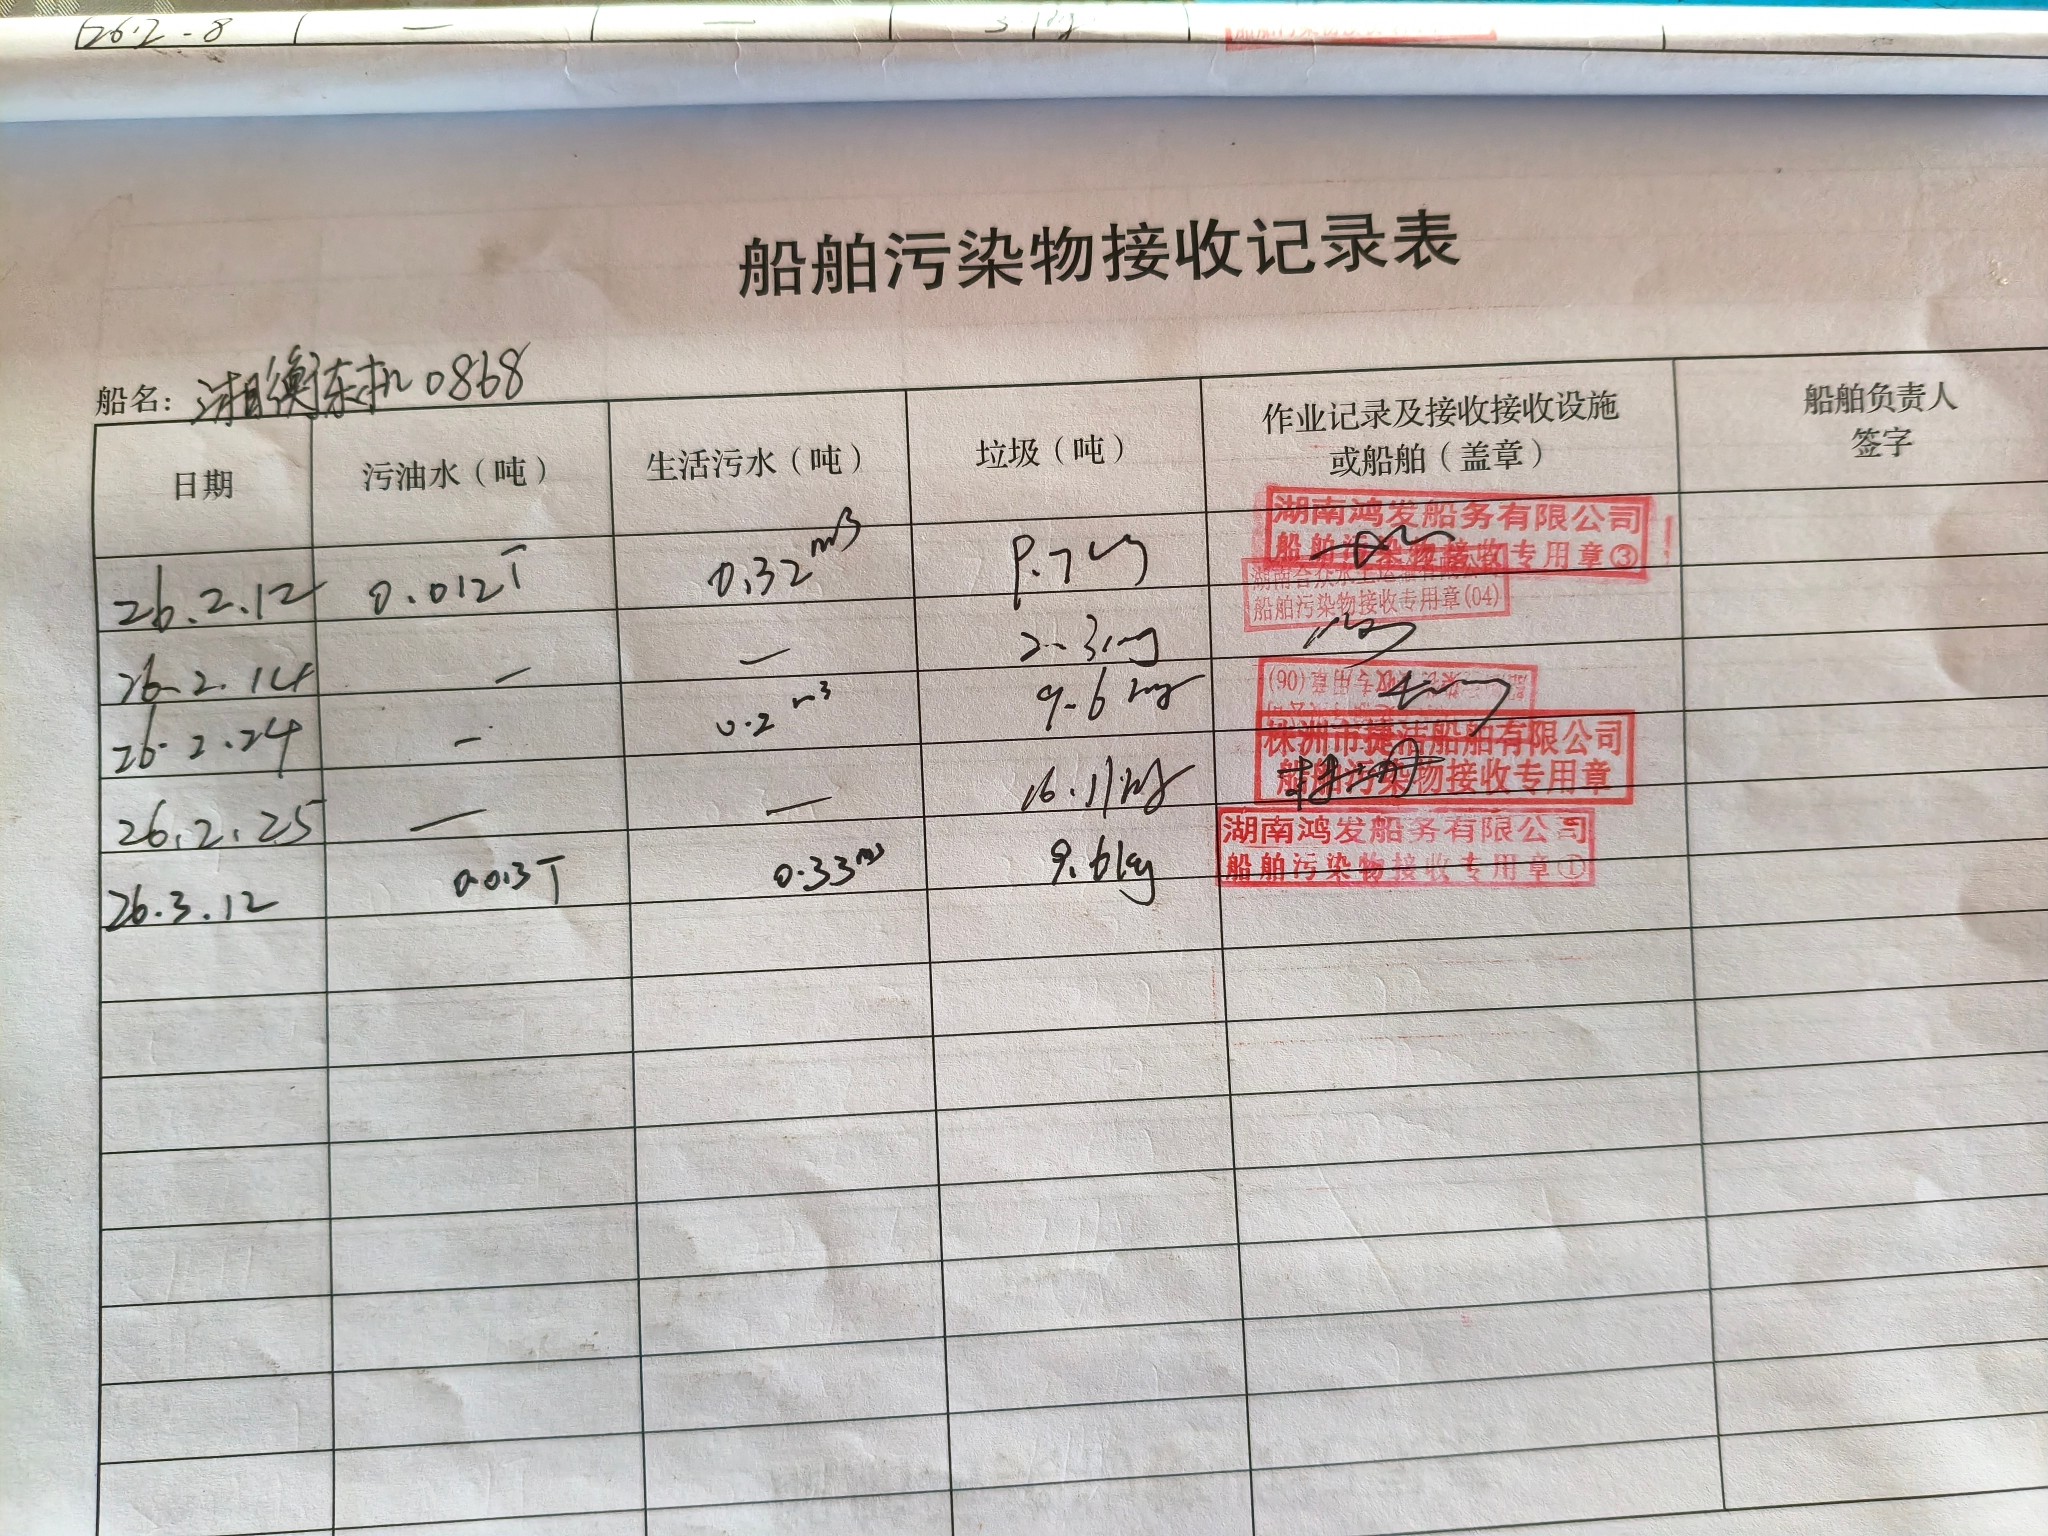 26.2-8 — —
船舶污染物接收记录表
船名: 湘衡东机0868
日期 污油水（吨） 生活污水（吨） 垃圾（吨） 作业记录及接收接收设施或船舶（盖章） 船舶负责人签字
湖南鸿发船务有限公司
船舶污染物接收专用章③
26.2.12 0.012T 0.32m³
船舶污染物接收专用章(04)
26.2.14 — — 2.3kg
26.2.24 — 0.2m³ 9.6kg
株洲市捷洁船舶有限公司
船舶污染物接收专用章
26.2.25 — — 16.11kg
湖南鸿发船务有限公司
船舶污染物接收专用章①
26.3.12 0.013T 0.33m³ 9.6kg